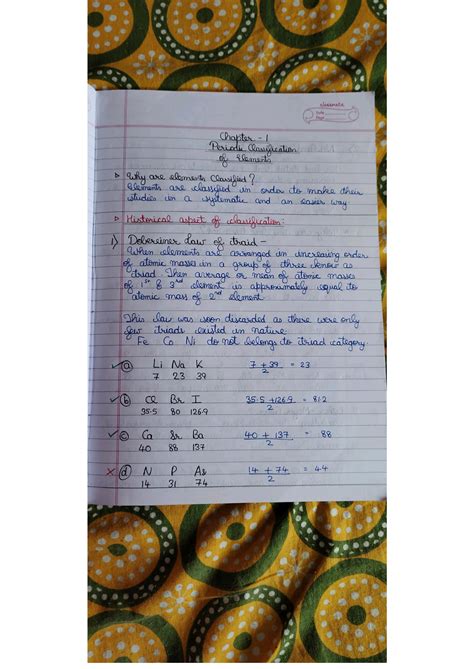 classmate
Date
Page
Chapter - 1
Periodic Classification
of Elements
▷ Why are elements Classified?
Elements are classified in order to make their
studies in a systematic and an easier way
▷ Historical aspect of classification:
1) Dobereiner Law of traid -
When elements are arranged in increasing order
of atomic masses in a group of three know as
triad. Then average or mean of atomic masses
of 1st & 3rd element is approximately equal to
atomic mass of 2nd element.
This law was soon discarded as there were only
few triads existed in nature.
Fe Co Ni do not belongs to triad category.
✓ (a) Li Na K 7 + 39 / 2 = 23
7 23 39
✓ (b) Cl Br I 35.5 + 126.9 / 2 = 81.2
35.5 80 126.9
✓ (c) Ca Sr Ba 40 + 137 / 2 = 88
40 88 137
× (d) N P As 14 + 74 / 2 = 44
14 31 74